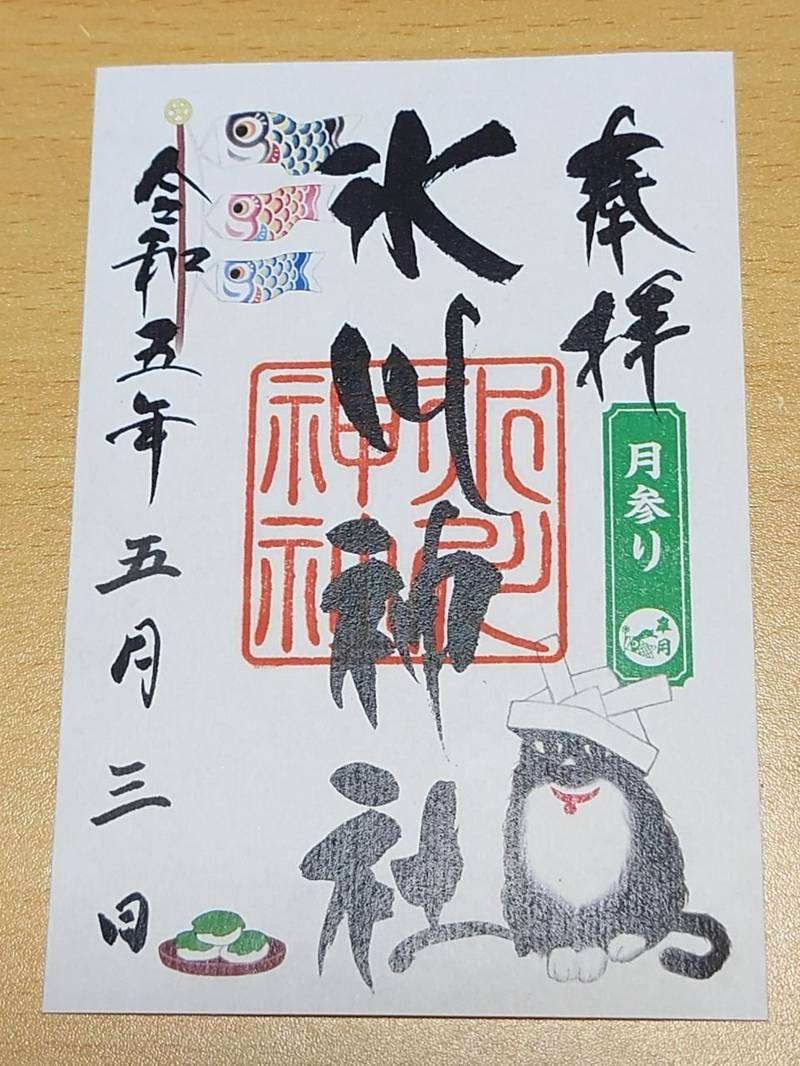 奉拝
月参り
皐月
氷川神社
氷川
神社
令和五年五月三日